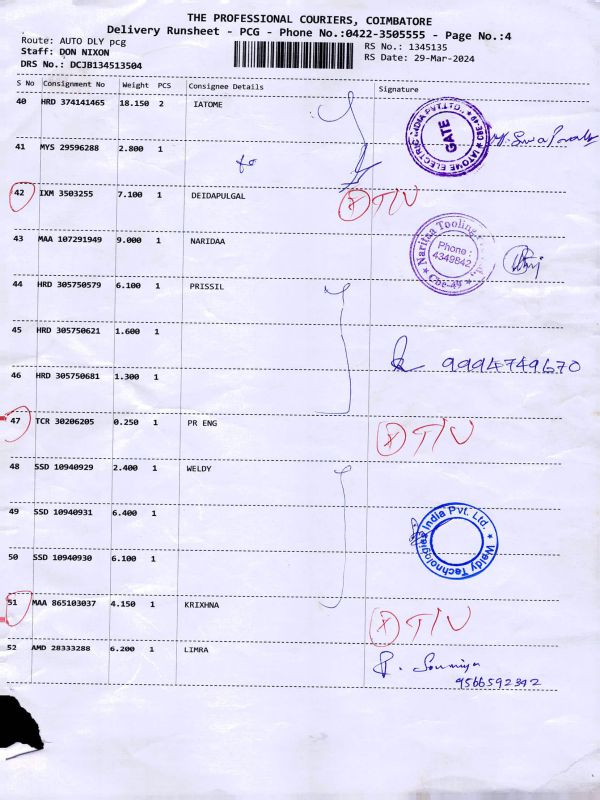 THE PROFESSIONAL COURIERS, COIMBATORE
Delivery Runsheet - PCG - Phone No.:0422-3505555 - Page No.:4
Route: AUTO DLY pcg
Staff: DON NIXON
DRS No.: DCJB134513504
RS No.: 1345135
RS Date: 29-Mar-2024
S No Consignment No Weight PCS Consignee Details Signature
40 HRD 374141465 18.150 2 IATOME
IATOME ELECTRIC INDIA PVT.LTD. CBE-49
GATE
41 MYS 29596288 2.800 1
42 IXM 3503255 7.100 1 DEIDAPULGAL
X T/V
43 MAA 107291949 9.000 1 NARIDAA
Phone :
4349842
44 HRD 305750579 6.100 1 PRISSIL
45 HRD 305750621 1.600 1
9994749670
46 HRD 305750681 1.300 1
47 TCR 30206205 0.250 1 PR ENG
X T/V
48 SSD 10940929 2.400 1 WELDY
49 SSD 10940931 6.400 1
Weldy Technologies India Pvt. Ltd.
50 SSD 10940930 6.100 1
51 MAA 865103037 4.150 1 KRIXHNA
X T/V
52 AMD 28333288 6.200 1 LIMRA
P. Soumiya
9566592342